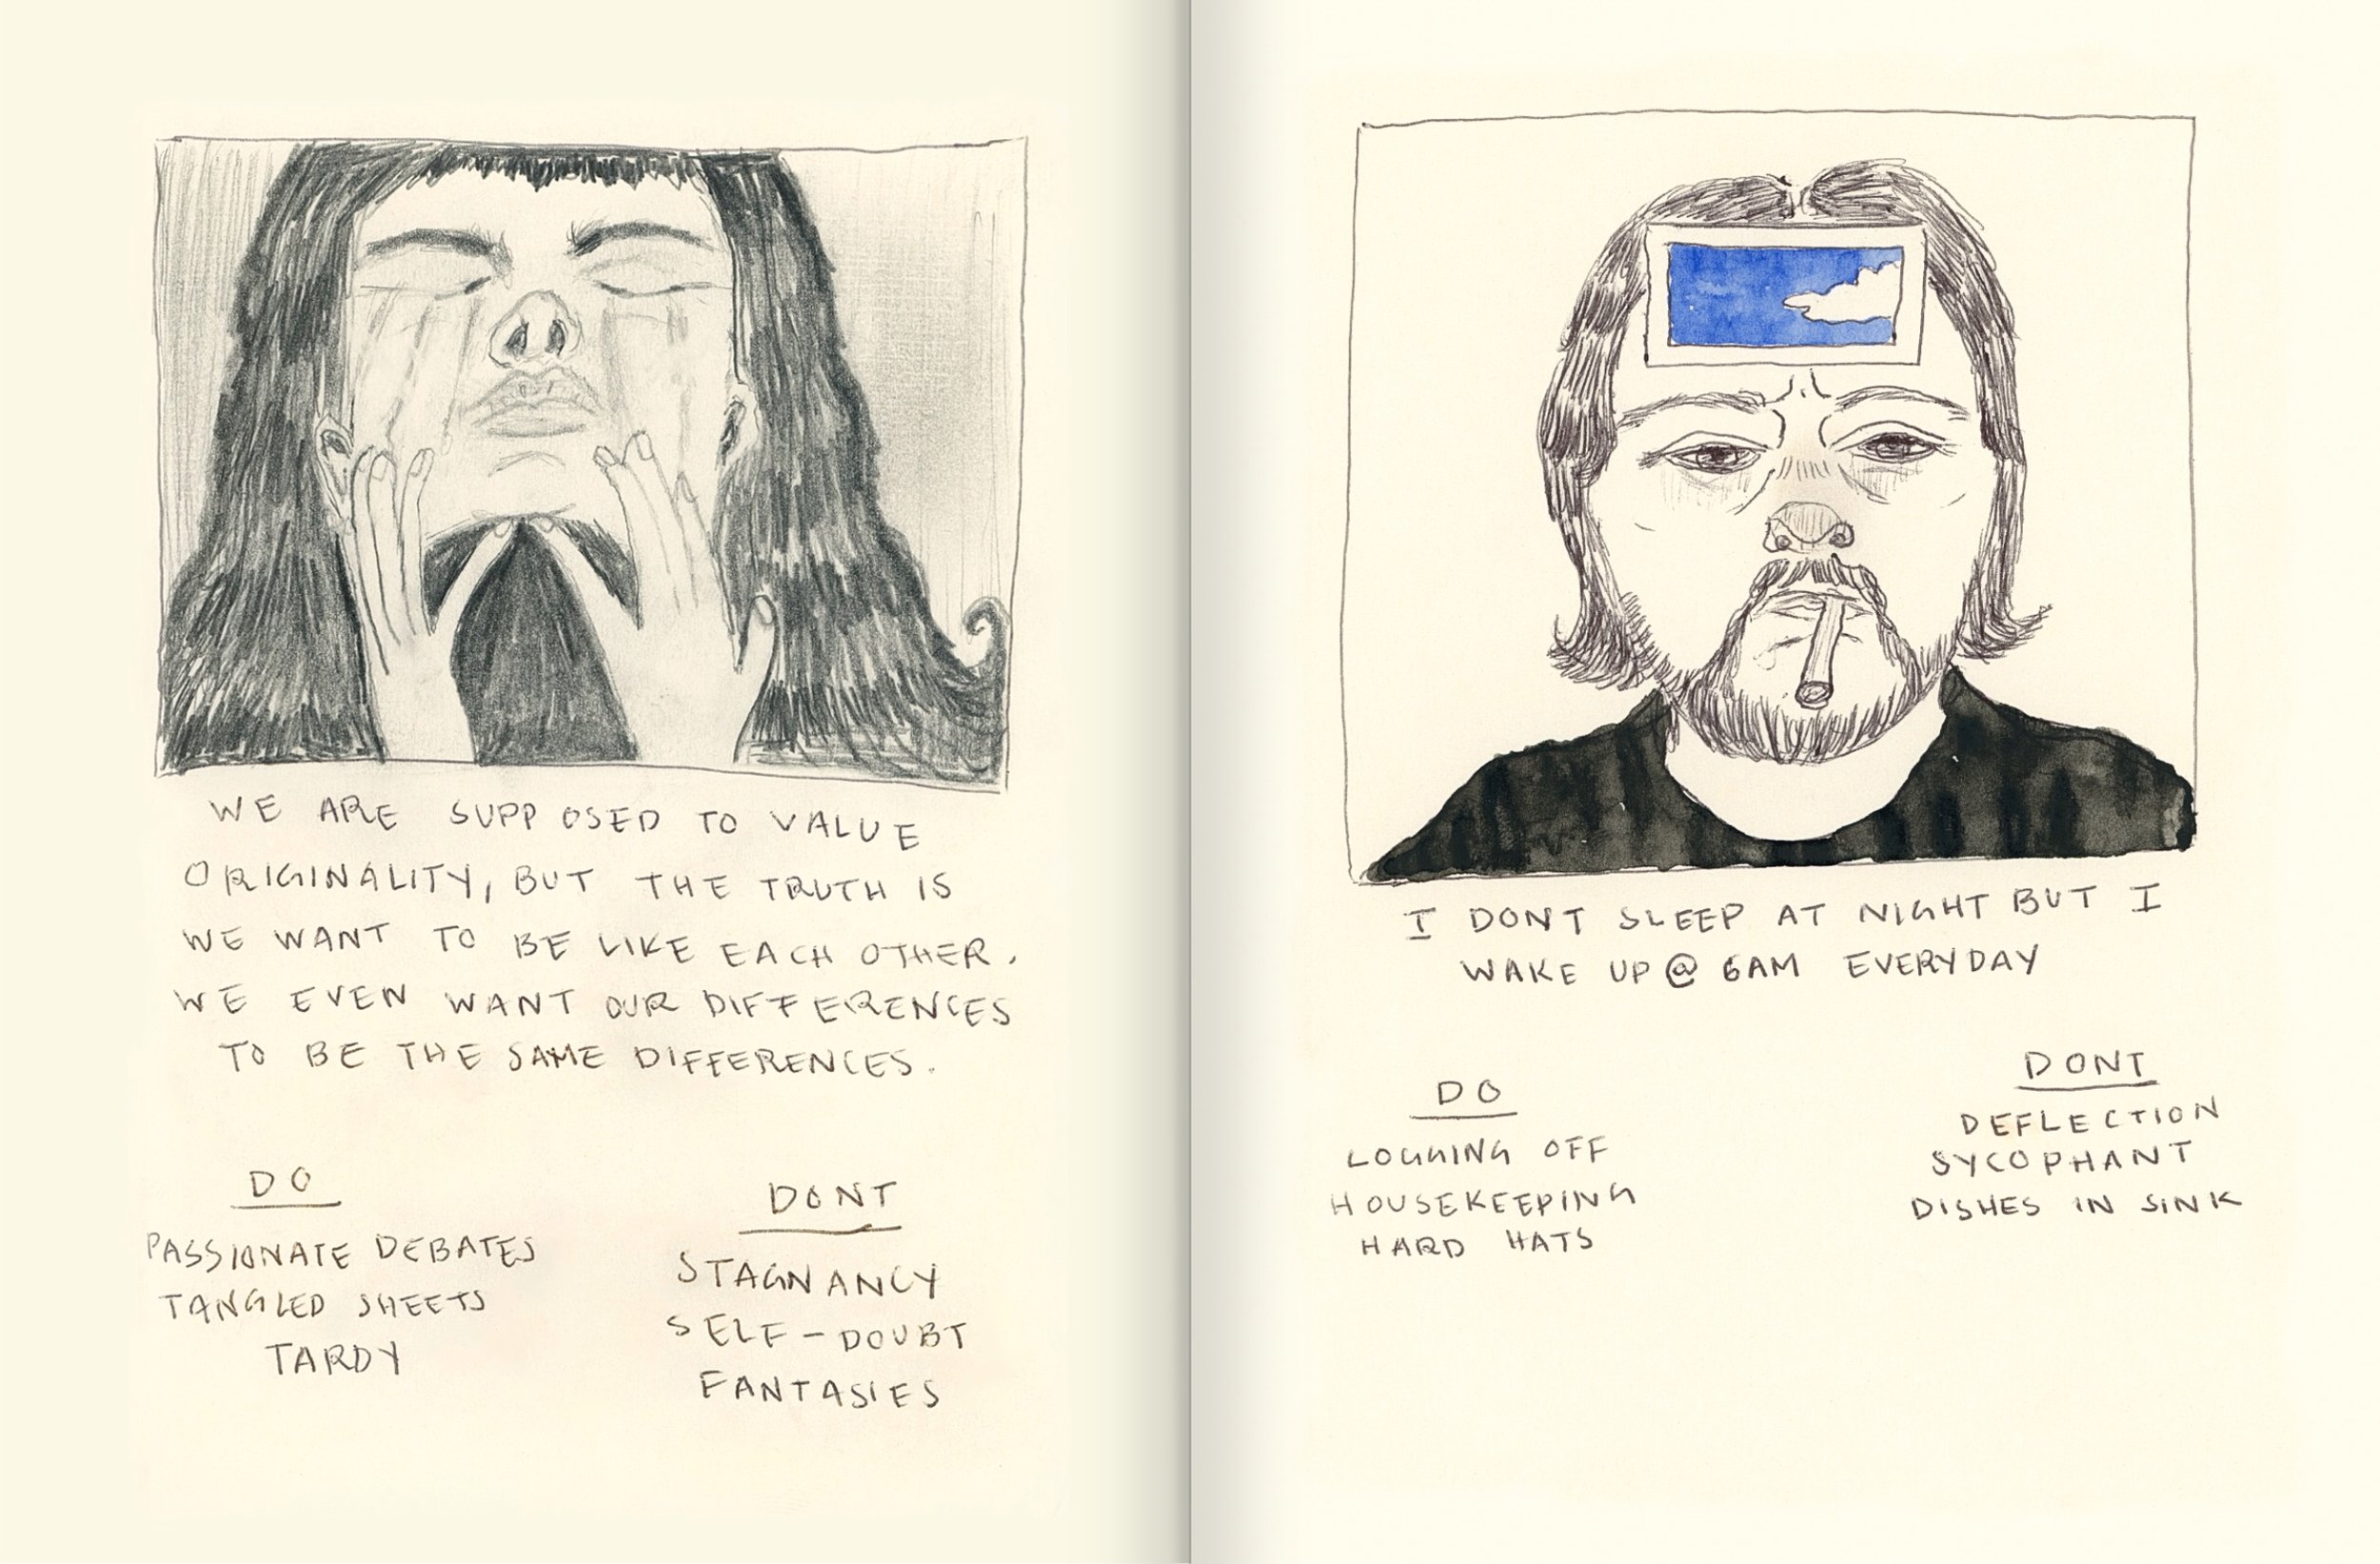 WE ARE SUPPOSED TO VALUE
ORIGINALITY, BUT THE TRUTH IS
WE WANT TO BE LIKE EACH OTHER.
WE EVEN WANT OUR DIFFERENCES
TO BE THE SAME DIFFERENCES.
DO
PASSIONATE DEBATES
TANGLED SHEETS
TARDY
DONT
STAGNANCY
SELF-DOUBT
FANTASIES
I DONT SLEEP AT NIGHT BUT I
WAKE UP @ 6AM EVERYDAY
DO
LOGGING OFF
HOUSEKEEPING
HARD HATS
DONT
DEFLECTION
SYCOPHANT
DISHES IN SINK